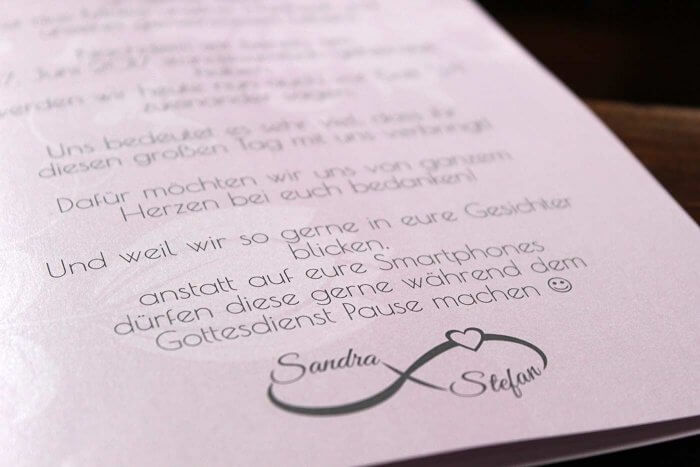 Juni 2017
werden wir heute nun auch vor Gott "Ja"
zueinander sagen.
Uns bedeutet es sehr viel, dass ihr
diesen großen Tag mit uns verbringt!
Dafür möchten wir uns von ganzem
Herzen bei euch bedanken!
Und weil wir so gerne in eure Gesichter
blicken,
anstatt auf eure Smartphones
dürfen diese gerne während dem
Gottesdienst Pause machen ☺
Sandra
Stefan